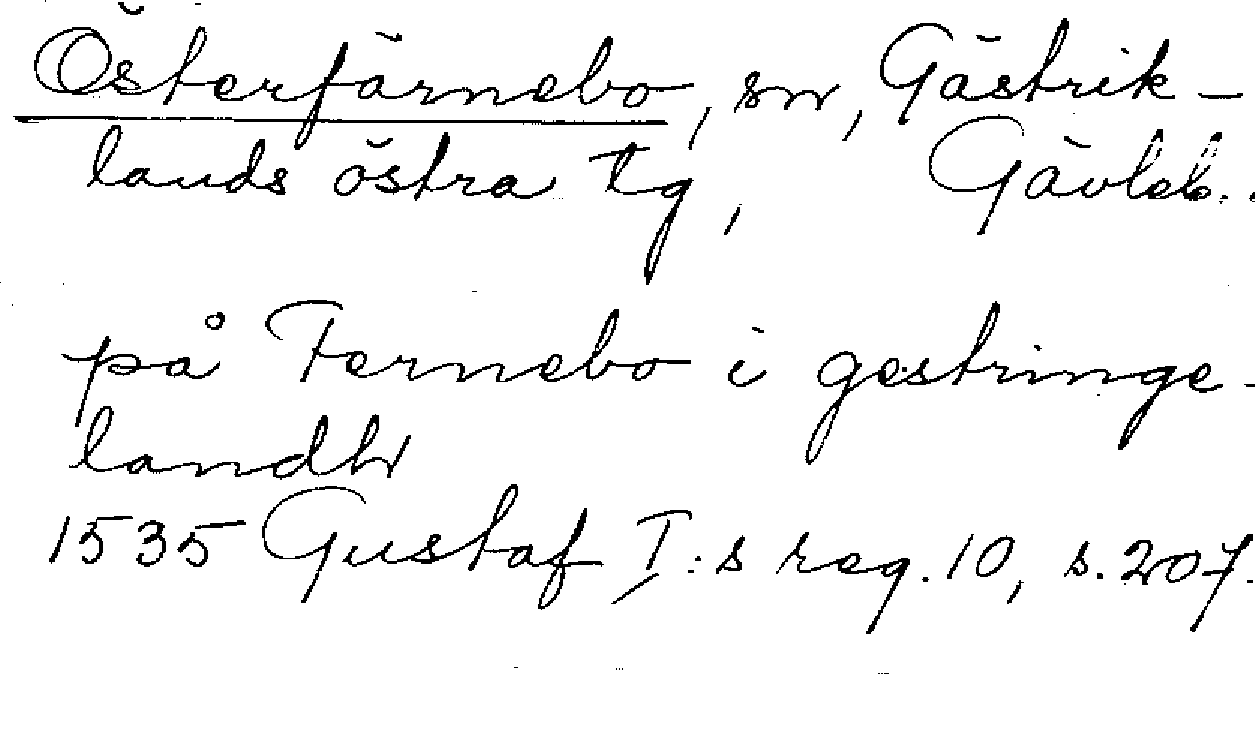 Österfärnebo, sn, Gästrik-
lands östra tg, Gävleb.
på Fernebo i gestringe-
landh
1535 Gustaf I:s reg. 10, s. 207.